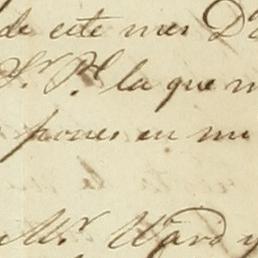 de este mes D
Sr. Pl la que m
pones en mi
Mr Ward y